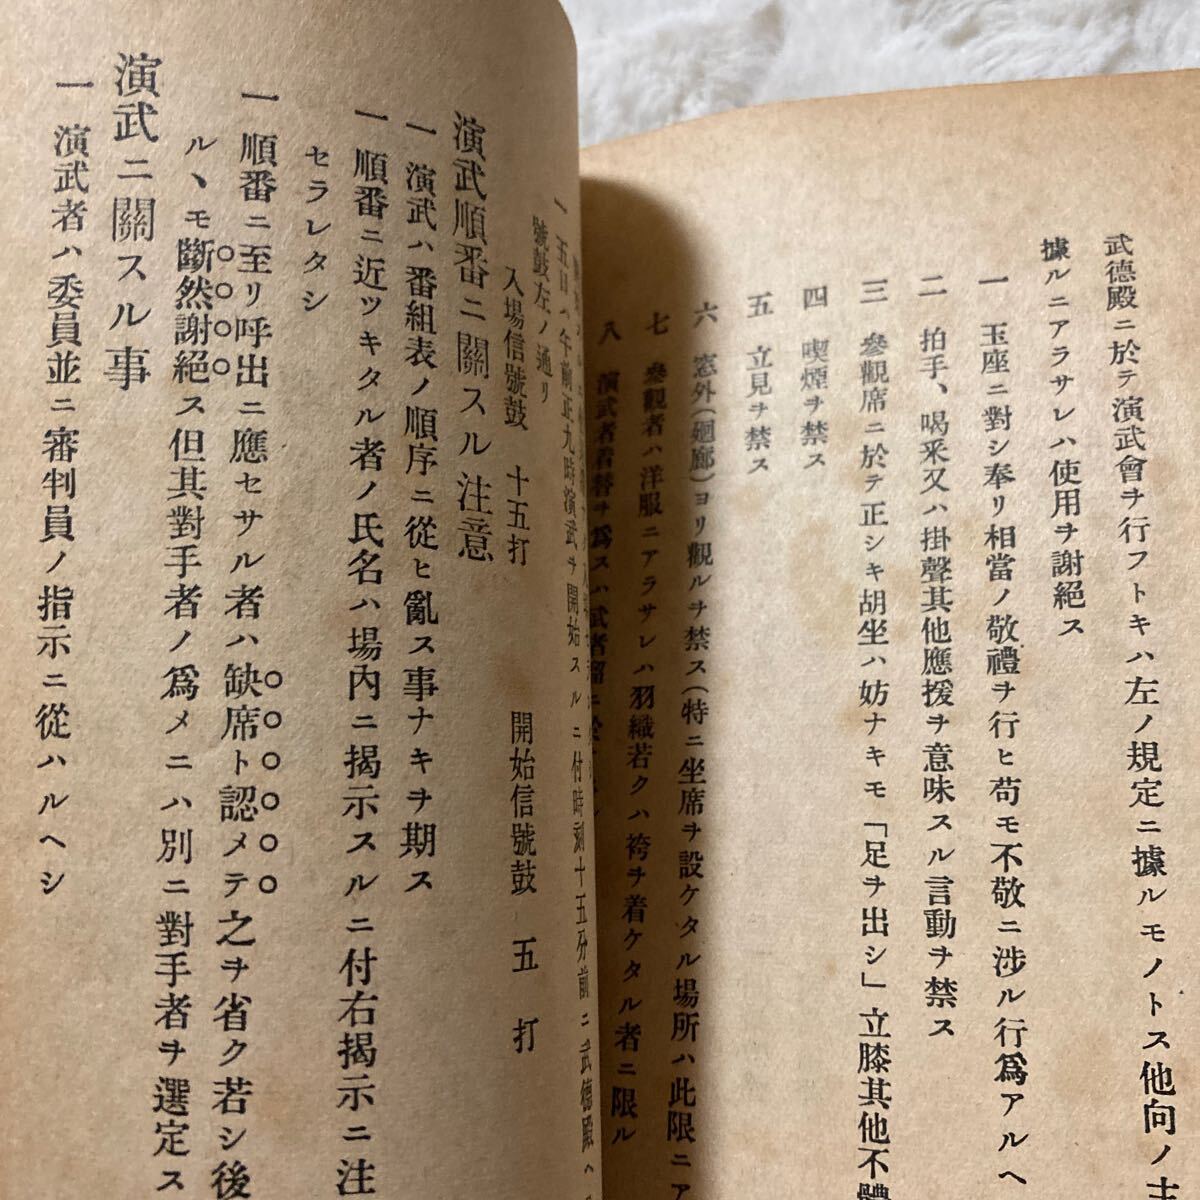 武德殿ニ於テ演武會ヲ行フトキハ左ノ規定ニ據ルモノトス他向ノ
據ルニアラサレハ使用ヲ謝絕ス
一 玉座ニ對シ奉リ相當ノ敬禮ヲ行ヒ苟モ不敬ニ涉ル行爲アルヘ
二 拍手、喝采又ハ掛聲其他應援ヲ意味スル言動ヲ禁ス
三 參觀席ニ於テ正シキ胡坐ハ妨ナキモ「足ヲ出シ」立膝其他不體
四 喫煙ヲ禁ス
五 立見ヲ禁ス
六 窓外(廻廊)ヨリ觀ルヲ禁ス(特ニ坐席ヲ設ケタル場所ハ此限ニア
七 參觀者ハ洋服ニアラサレハ羽織若クハ袴ヲ着ケタル者ニ限ル
八 演武者着替ヲ爲スハ武者溜ニ
一 五日ハ午前正九時演武ヲ開始スルニ付時刻十五分前ニ武德殿ヘ
號鼓左ノ通リ
入場信號鼓 十五打 開始信號鼓 五打
演武順番ニ關スル注意
一 演武ハ番組表ノ順序ニ從ヒ亂ス事ナキヲ期ス
一 順番ニ近ツキタル者ノ氏名ハ場內ニ揭示スルニ付右揭示ニ注
セラレタシ
一 順番ニ至リ呼出ニ應セサル者ハ缺席ト認メテ之ヲ省ク若シ後
ルヽモ斷然謝絕ス但其對手者ノ爲メニハ別ニ對手者ヲ選定ス
演武ニ關スル事
一 演武者ハ委員並ニ審判員ノ指示ニ從ハルヘシ